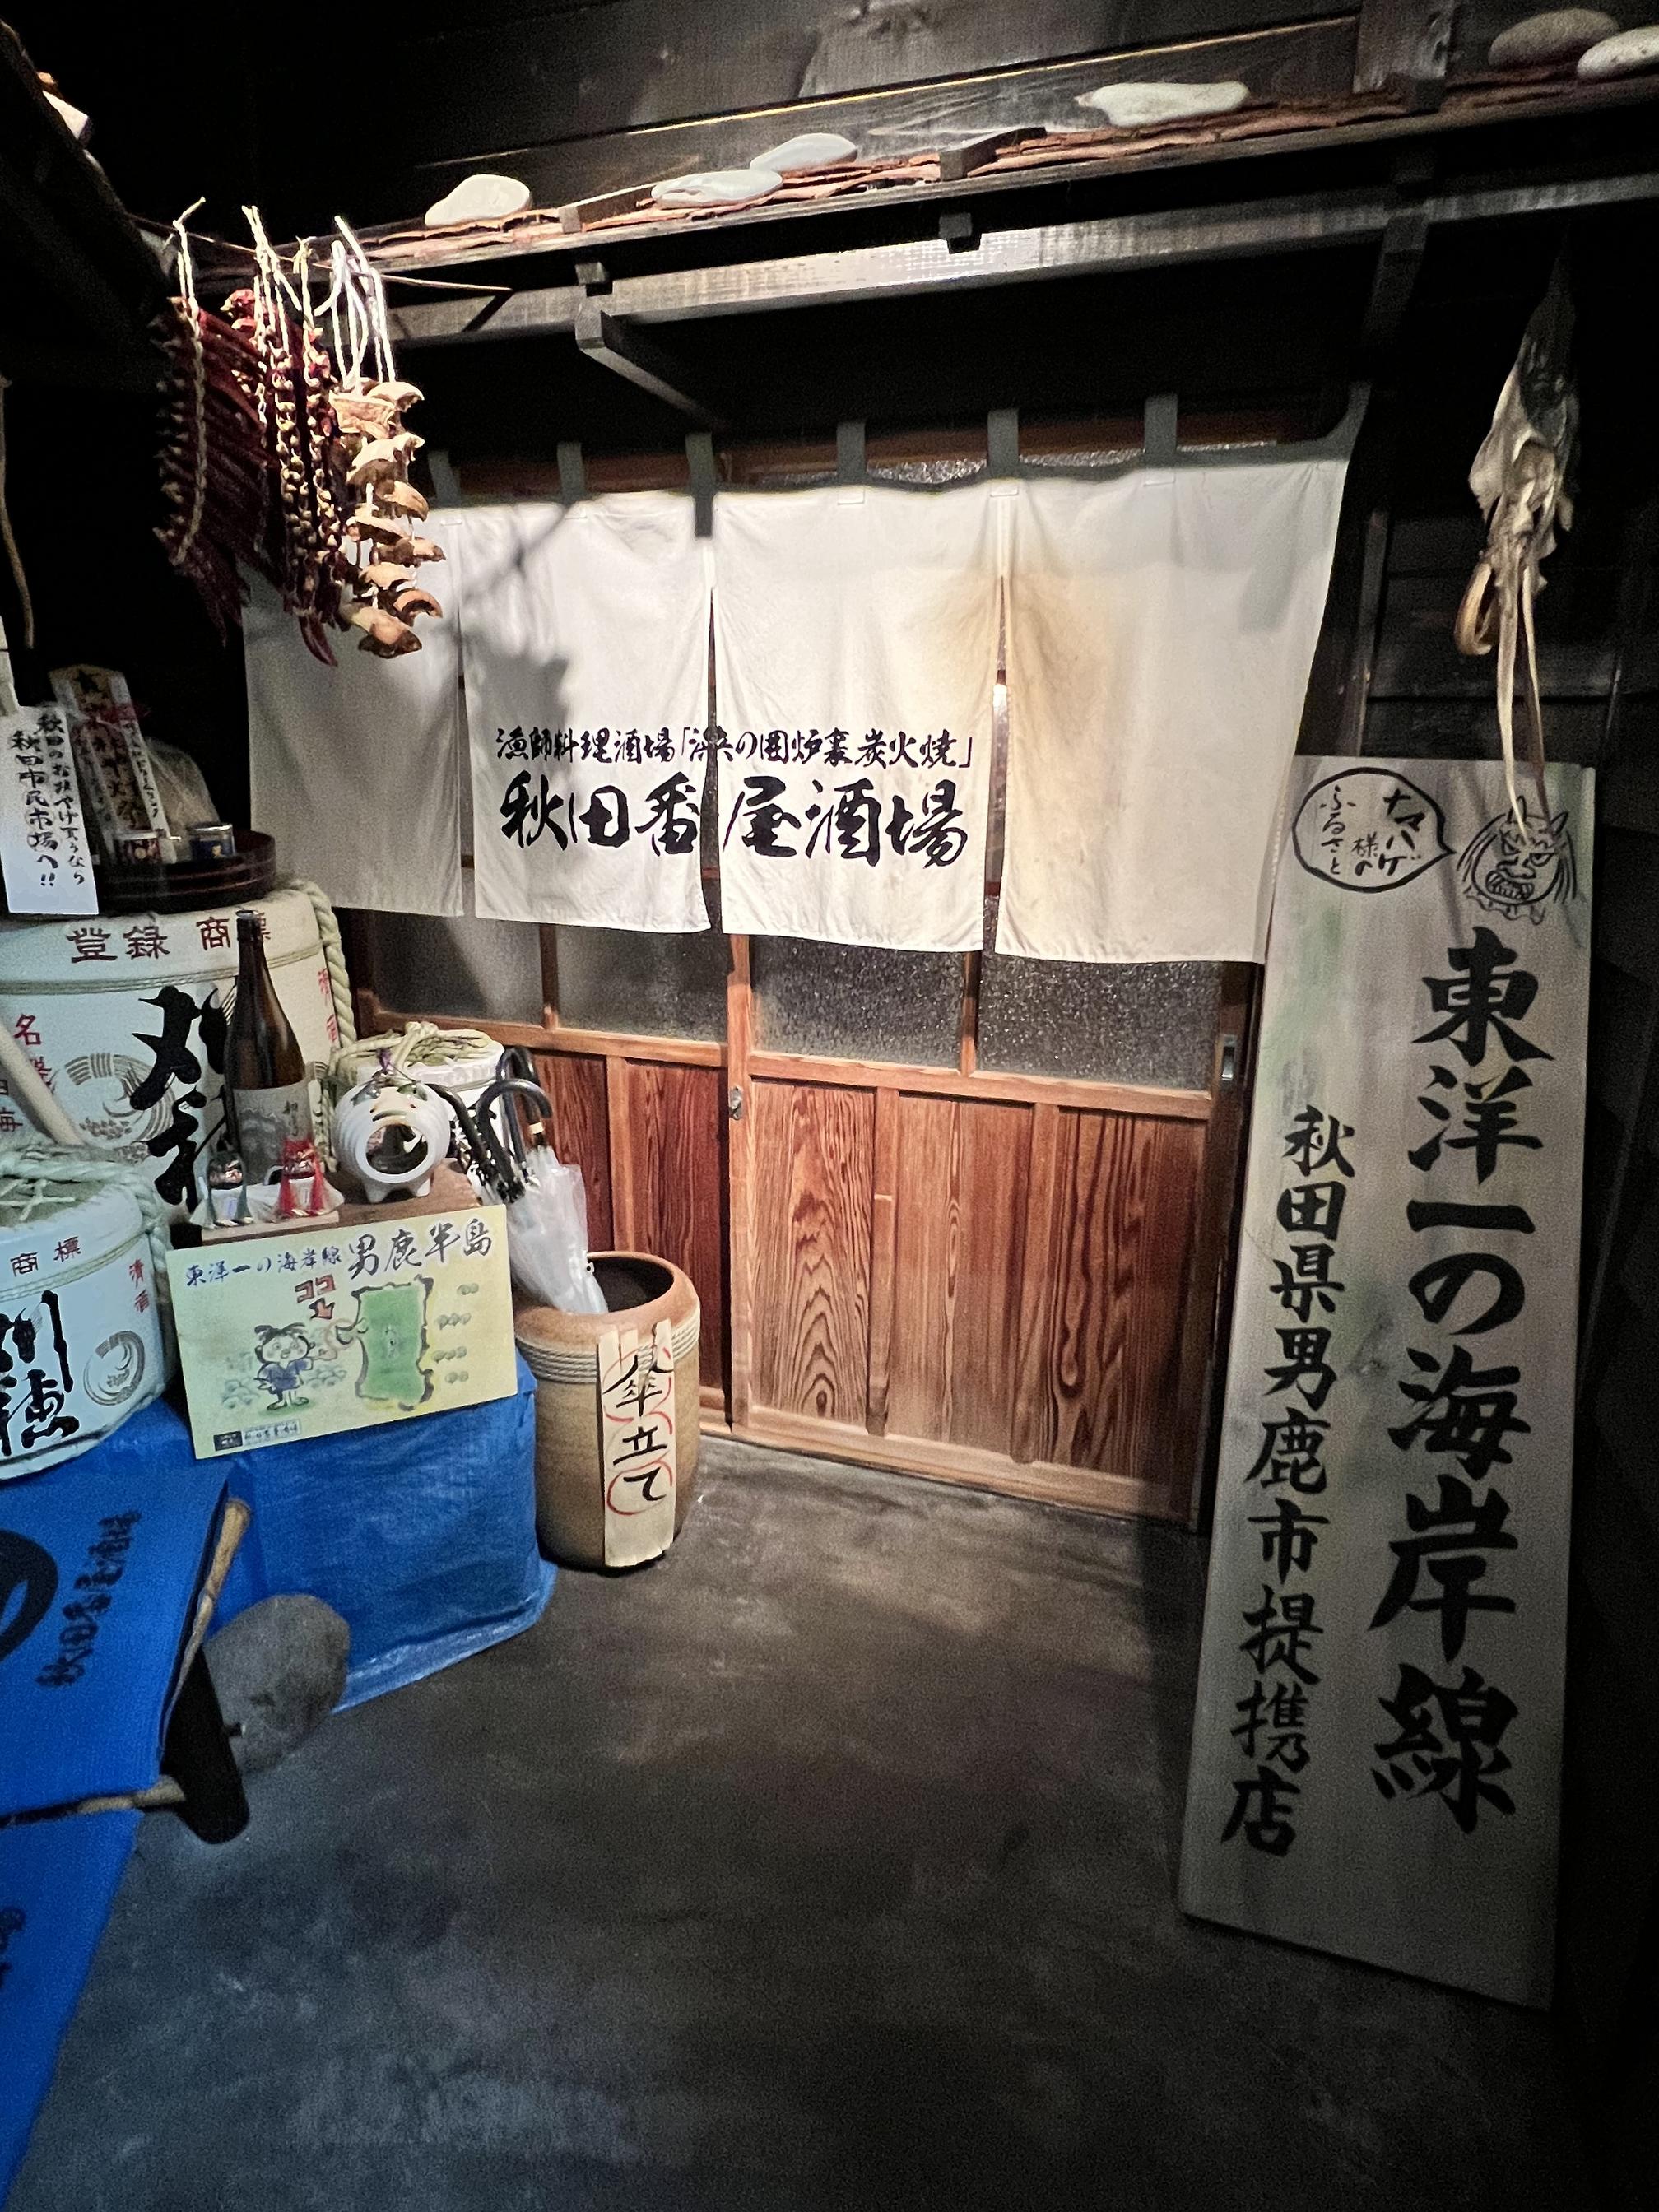 漁師料理酒場「浜の囲炉裏炭火焼」
秋田番屋酒場
ナマハゲ
様の
ふるさと
東洋一の海岸線
秋田県男鹿市提携店
秋田のおみやげ買うなら
秋田市民市場へ!!
登録 商標
名
商標
清酒
東洋一の海岸線 男鹿半島
ココ
傘立て
秋田番屋酒場